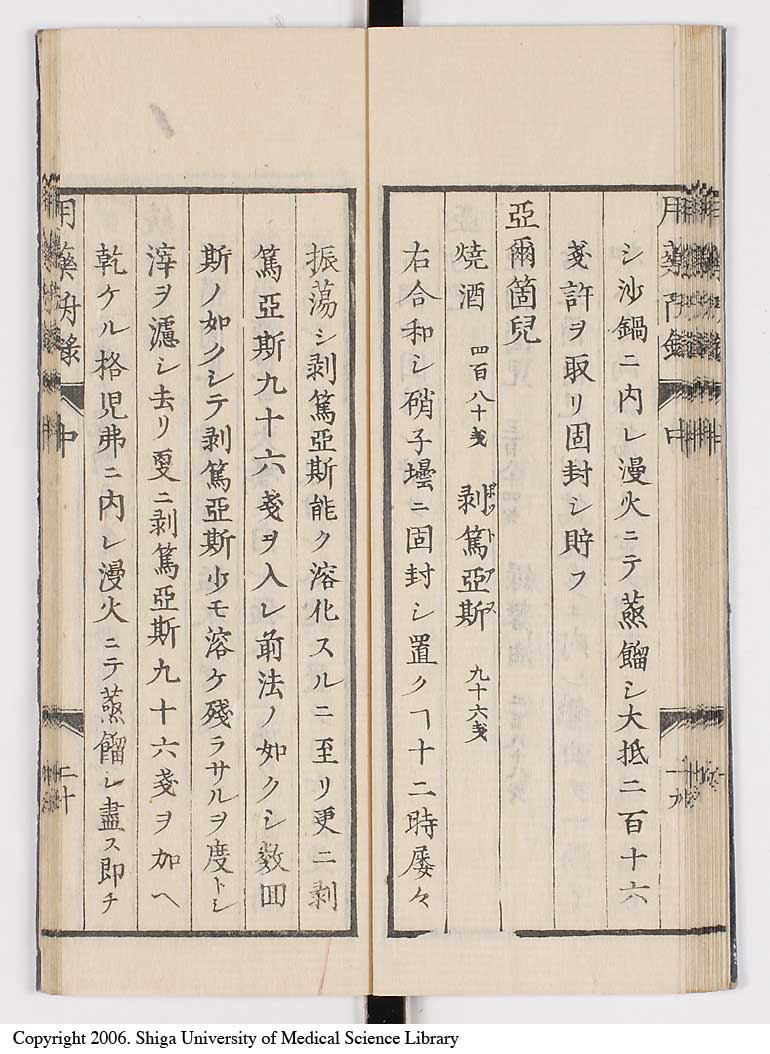 シ沙鍋ニ内レ漫火ニテ蒸餾シ大抵二百十六
戔許ヲ取リ固封シ貯フ
亞爾箇兒
燒酒 四百八十戔 剥篤亞斯 九十六戔
ポットアス
右合和シ硝子壜ニ固封シ置クヿ十二時屡々
十九
振蕩シ剥篤亞斯能ク溶化スルニ至リ更ニ剥
篤亞斯九十六戔ヲ入レ前法ノ如クシ數回
斯ノ如クシテ剥篤亞斯少モ溶ケ殘ラサルヲ度トシ
滓ヲ濾シ去リ更ニ剥篤亞斯九十六戔ヲ加ヘ
乾ケル格児弗ニ内レ漫火ニテ蒸餾シ盡ス即チ
中
二十
Copyright 2006. Shiga University of Medical Science Library